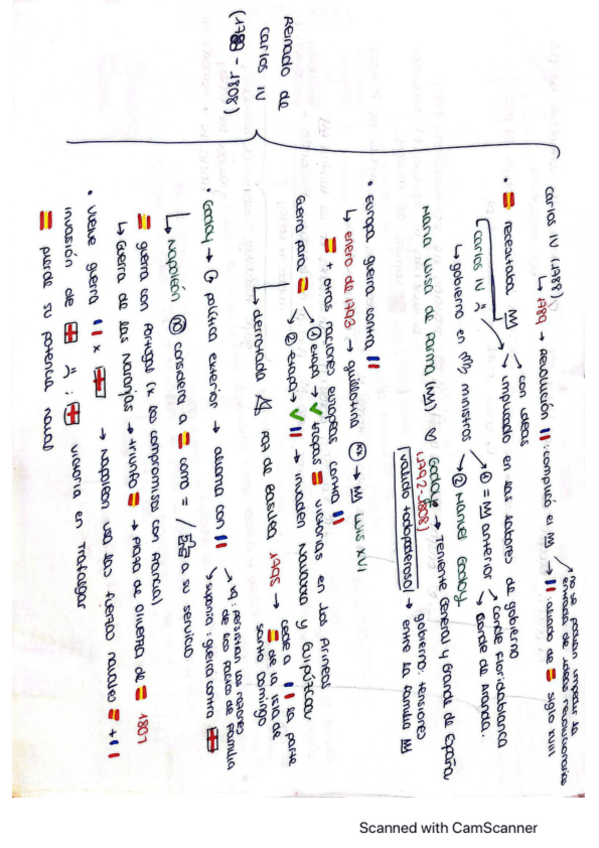 Reinado de
Carlos IV
(1788 - 1808)
Carlos IV (1788)
↳ 1789 → Revolución : complicó el → : aliado de siglo XVIII
→ no se podían impedir la
entrada de ideas revolucionarias
• necesitaba
con ideas
implicado en las labores de gobierno
Carlos IV
↳ gobierno en ministros
① = anterior
Conde Floridablanca
Conde de Aranda.
② Manuel Godoy
María Luisa de Parma Godoy → Teniente General y Grande de España
(1792-1808)
valido todopoderoso → gobierno: tensiones
entre la familia
• Europa guerra contra
↳ enero de 1793 → guillotina → Luis XVI
↳ otras naciones europeas contra
Guerra para
① etapa → ✓ tropas victorias en los Pirineos
② etapa → ✓ → invaden Navarra y Guipúzcoa
↳ derrotada Paz de Basilea 1795 → cede a la parte
de la isla de
Santo Domingo
• Godoy → política exterior → alianza con
→ xq: persistían las razones
de los Pactos de Familia
→ suponía: guerra contra
↳ Napoleón NO considera a como = / a su servicio
guerra con Portugal (x los compromisos con Francia)
↳ Guerra de las Naranjas → triunfo → plaza de Olivenza de 1801
• vuelve guerra x → Napoleón usa las fuerzas navales +
invasión de : victoria en Trafalgar
pierde su potencia naval
Scanned with CamScanner